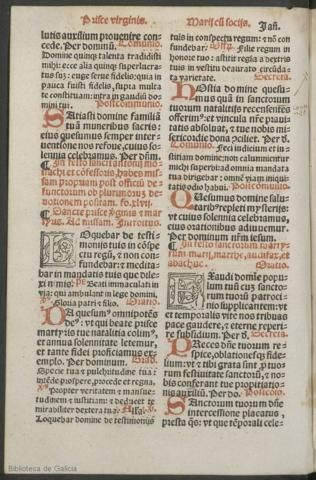 Prisce virginis.
Marij cũ socijs.
Jañ.
lutis auxilium prouenire con-
cede. Per dominũ. Comunio.
Domine quinq; talenta tradidisti
mihi: ecce alia quinq; superlucra-
tus suz: euge serue fidelis: quia in
pauca fuisti fidelis, supra multa
te constituam: intra in gaudiũ do
mini tui. Postcommunio.
SAtiasti domine familiã
tuã muneribus sacris:
eius quesumus semper inter-
uentione nos refoue, cuius so-
lennia celebramus. Per dñm.
¶ In festo sancti
machi et cõfessoris, habes mis-
sam propriam post officiũ de-
functorum ob plurimorũ de-
uotionem positam. fo.
¶ Sancte prisce v̓ginis et mar
tyris. Ad missam. Introitus.
LOquebar de testi-
monijs tuis in cõspe
ctu regũ, et non con
fundebar: et medita-
bar in mandatis tuis que dile-
xi nimis. ps Beati immaculati in
via: qui ambulant in lege domini.
℣. Gloria patri et filio. Oratio.
DA quesum⁹ omnipotẽs
de⁹: vt qui beate prisce
martyris tue natalitia colim⁹,
et annua solennitate letemur, et
tante fidei proficiamus ex-
emplo. Per dominum. Grad.
Specie tua et pulchritudine tua:
intẽde prospere, procede et regna.
℣. Propter veritatem et mansue-
tudinem et iustitiam: et deducet te
mirabiliter dextera tua. Alla. ℣.
Loquebar domine de testimonijs
tuis in conspectu regum: et nõ con
fundebar. Offer. Filie regum in
honore tuo: astitit regina a dextris
tuis in vestitu deaurato circũda-
ta varietate. Secreta.
HOstia domine quesu-
mus quã in sanctorum
tuorum natalitijs recensentes
offerim⁹: et vincula nr̃e praui
tatis absoluat, et tue nobis mi-
sericordie dona cõciliet. Per dñ.
Comunio. Feci iudicium et iu-
stitiam domine: non calumnientur
michi superbi: ad omnia mandata
tua dirigebar: omnẽ viam iniqui
tatis odio habui. Postcõmunio.
QUesumus domine salu
tarib⁹ repleti myſterijs:
vt cuius solennia celebramus,
eius orationibus adiuuemur.
Per dominum nr̃m iesum.
¶ In festo sanctorum marty-
rum marij, marthe, audifax, et
abachuc. Oratio.
EXaudi domine popu-
lum tuũ cuz sancto-
rum tuorũ patroci-
nio supplicantem: vt
et temporalis vite nos tribuas
pace gaudere, et eterne reperi-
re subsidium. Per dñ. Secreta.
PReces dñe tuorum re-
spice, oblationesq; fide-
lium: vt et tibi grata sint p̃ tuo
rum festiuitate sanctorũ, et no-
bis conferant tue propitiatio-
nis auxiliũ. Per do. Postcõio.
SAnctorum tuorum dñe
intercessione placatus,
presta q̃s: vt que tẽporali cele-
Biblioteca de Galicia